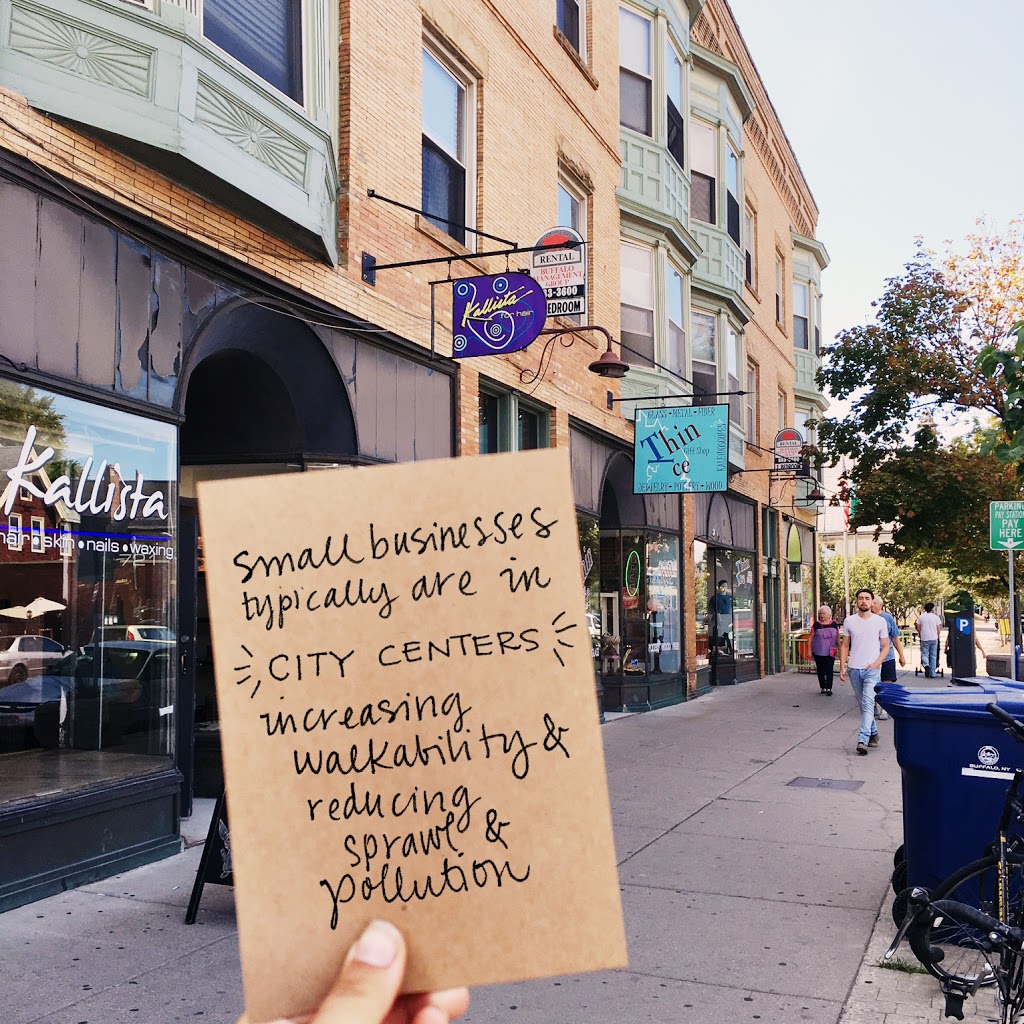 RENTAL
BUFFALO
MANAGEMENT
GROUP
3-3600
EDROOM
Kallista
for hair
GLASS • METAL • FIBER
Thin
Gift Shop
ce
KALEIDOSCOPES
JEWELRY • POTTERY • WOOD
RENTAL
Kallista
hair • skin • nails • waxing
721
PARKING
PAY STATION
PAY
HERE
P
BUFFALO, NY
small businesses
typically are in
CITY CENTERS
increasing
walkability &
reducing
sprawl &
pollution